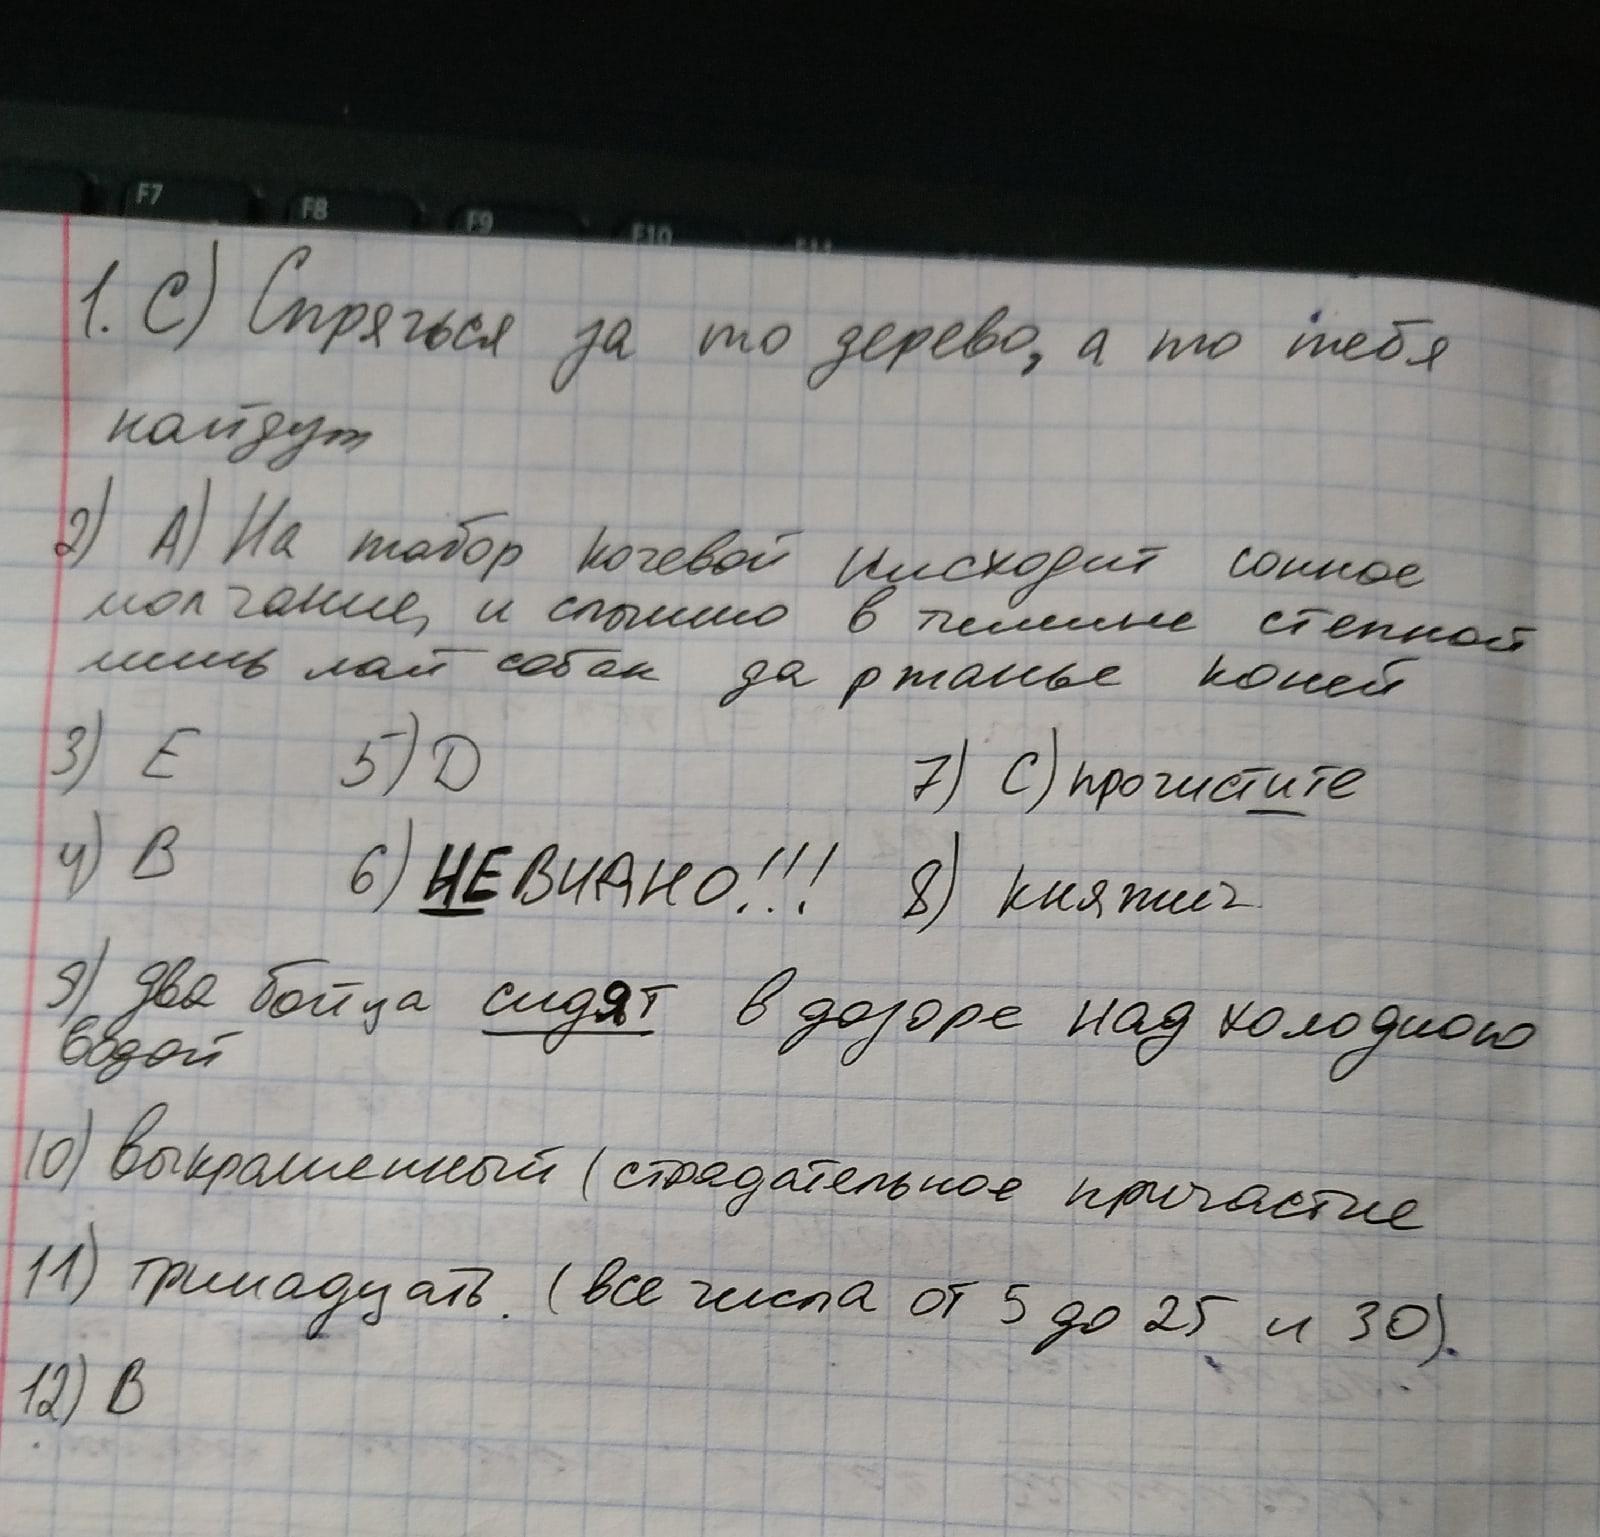 F7 F8 F9 F10 F11
1. С) Спрячься за то дерево, а то тебя
найдут
2) А) На табор кочевой нисходит сонное
молчание, и слышно в тишине степной
лишь лай собак да ржанье коней
3) Е 5) D 7) С) прочистите
4) В 6) НЕ ВИДНО!!! 8) княжич
9) два бойца сидят в дозоре над холодною
водой
10) выкрашенный (страдательное причастие
11) тринадцать. (все числа от 5 до 25 и 30).
12) В